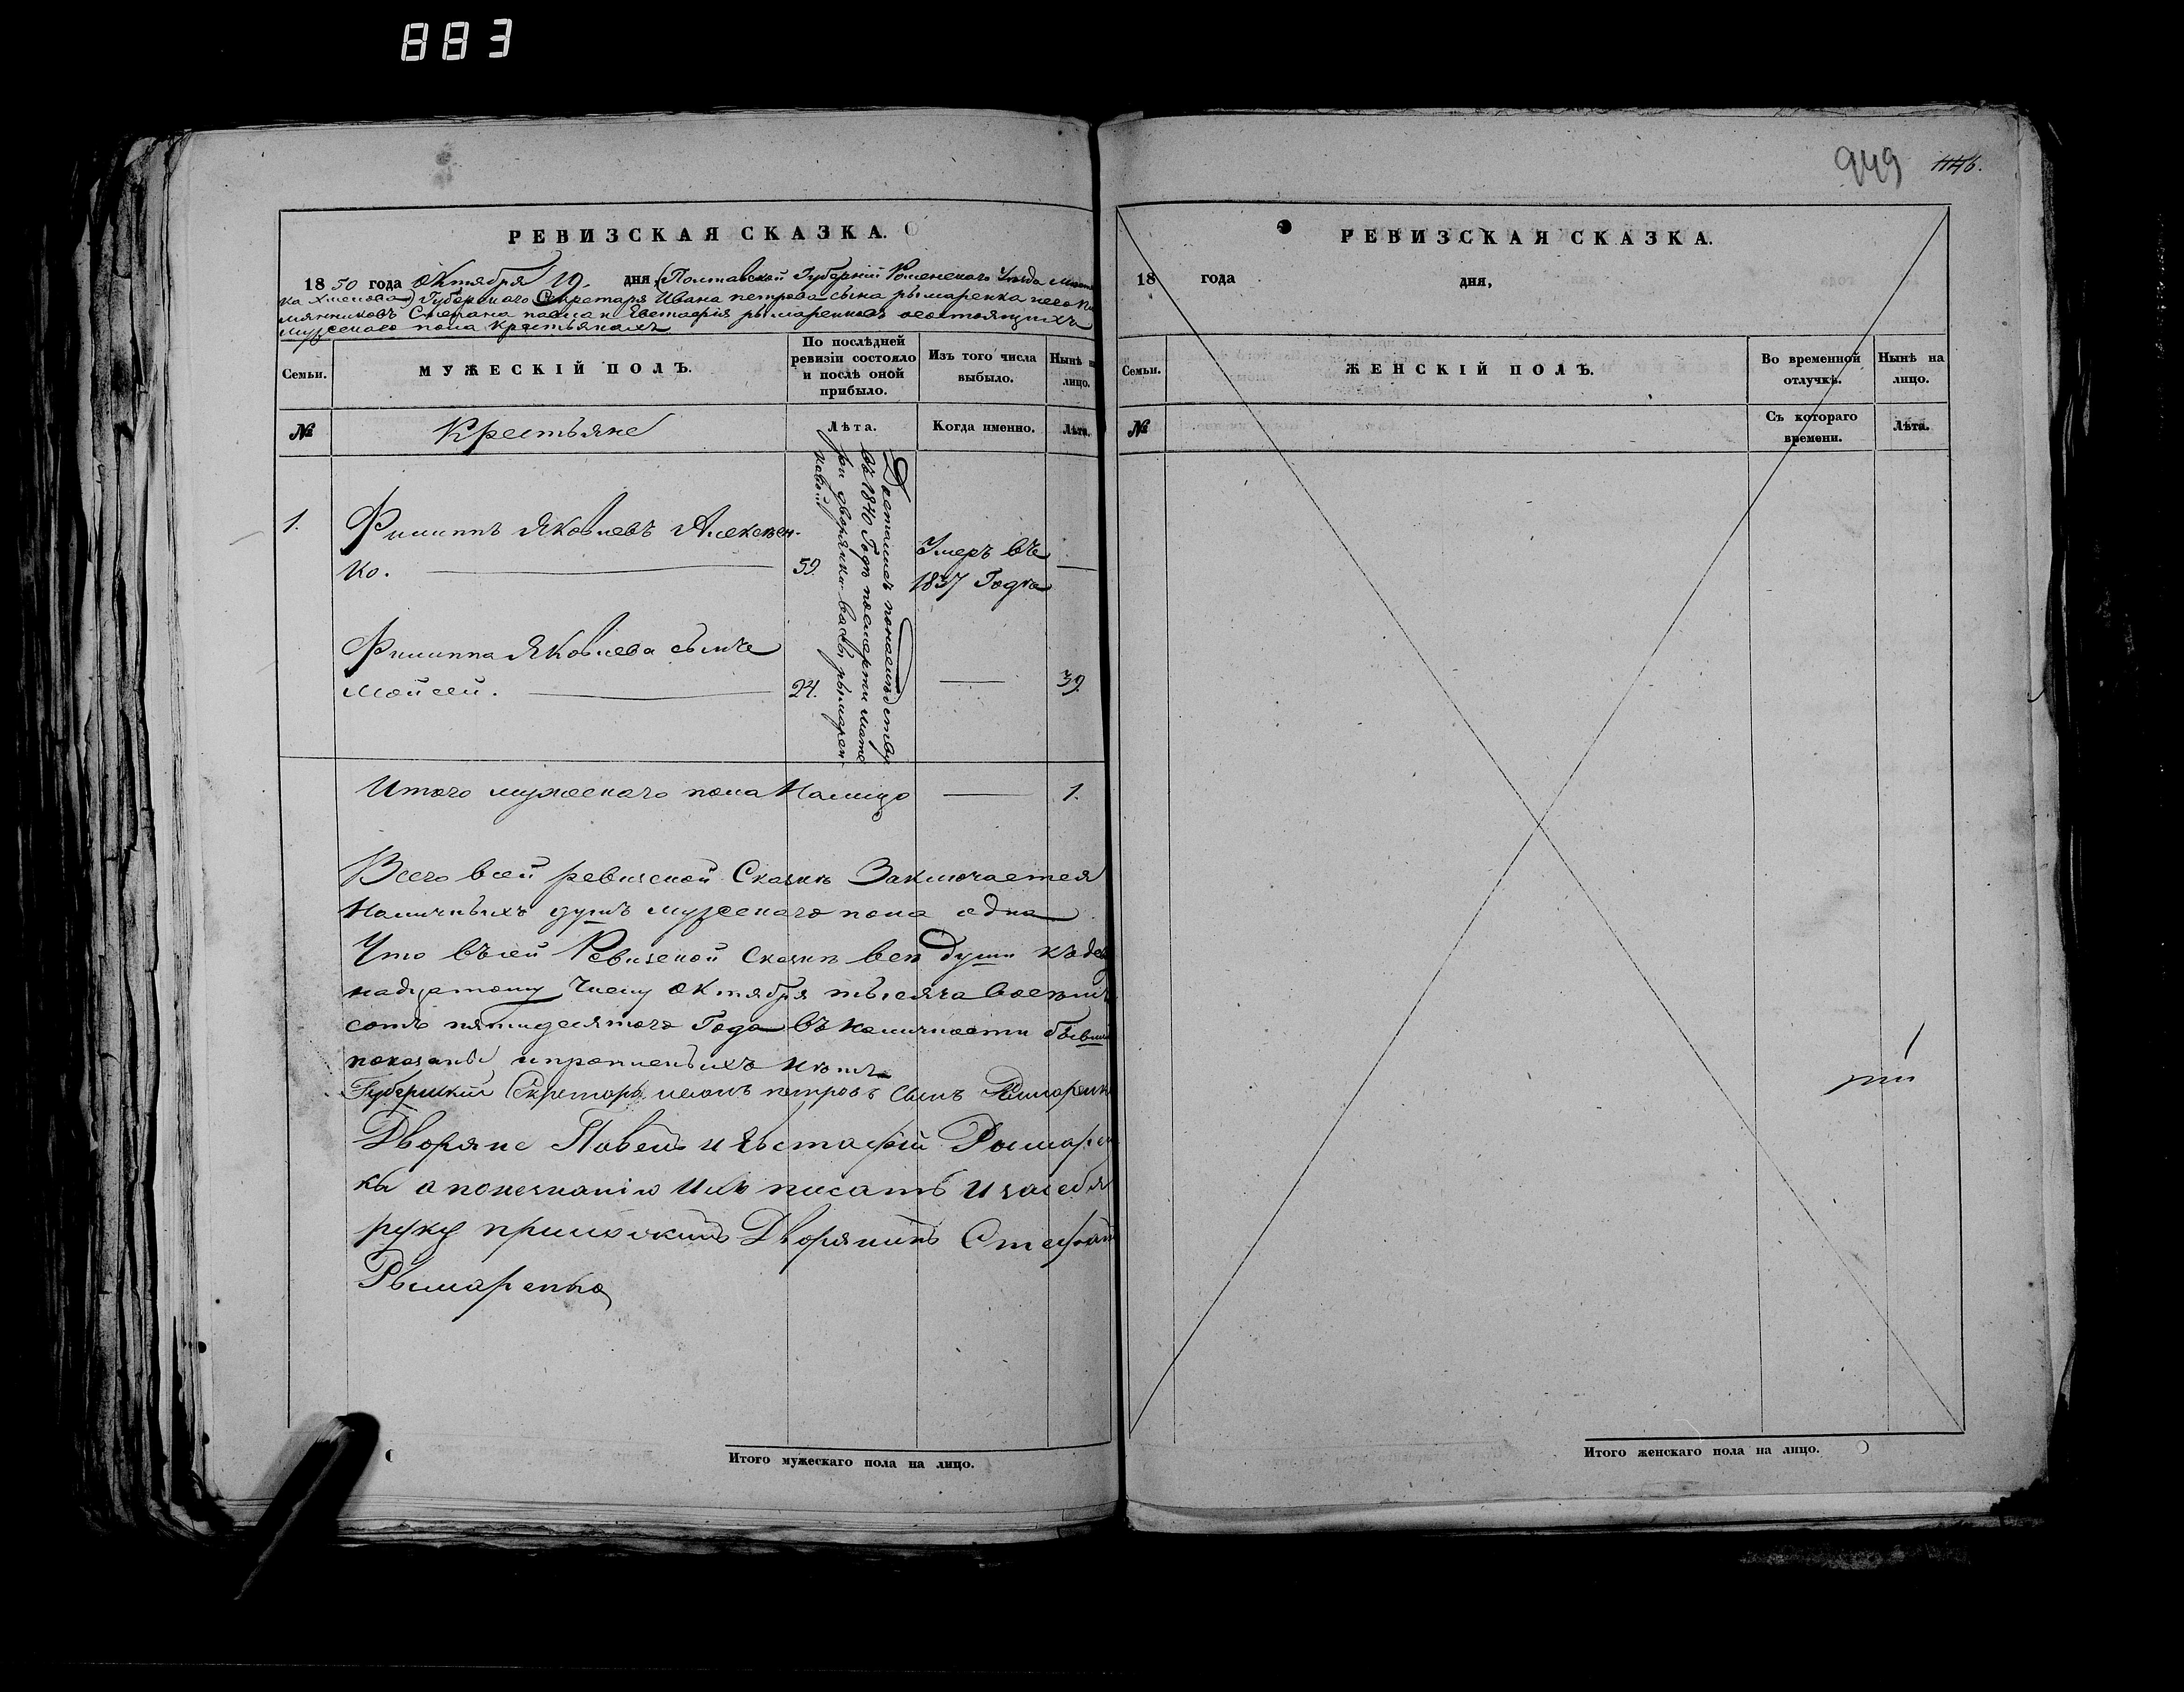 883
949 1146.
РЕВИЗСКАЯ СКАЗКА.
1850 года Октября 19. дня, (Полтавской Губернии Роменского Уезда Местеч
ка Хмелова) Губернского Секретаря Ивана петрова сына рымаренка и его пле
мянников Степана павла и Евстафія рымаренков о состоящихъ
мужеского пола крестьянахъ
Семьи.
МУЖЕСКІЙ ПОЛЪ.
По послѣдней ревизіи состояло и послѣ оной прибыло.
Изъ того числа выбыло.
Нынѣ на лицо.
№
Крестьяне
Лѣта.
Когда именно.
Лѣта.
Достался понаследству
въ 1840 Годе посмерти мате
ри дворянки Вассы рымарен
ковой
1. Филиппъ Яковлевъ Алексеен-
ко. 59. Умеръ въ
1837 Года
Филиппа Яковлева сынъ
Мойсей. 24. 39.
Итого мужеского пола Налицо 1.
Всего всей ревизской Сказке Заключается
Наличныхъ душъ мужеского пола одна
Что въсей Ревизской Сказке все души къ девят
надцатому Числу Октября тысяча восемь
сотъ пятидесятого Года въ наличности бывшие
показаны и прописныхъ нетъ
Губернский Секретарь иванъ петровъ Сынъ Рымаренко
Дворяне Павелъ и Евстафій Рымарен
ки а понезнанію ихъ писать и засебя
руку приложилъ Дворянинъ Стефанъ
Рымаренко
Итого мужескаго пола на лицо.
РЕВИЗСКАЯ СКАЗКА.
18 года дня,
Семьи.
ЖЕНСКІЙ ПОЛЪ.
Во временной отлучкѣ.
Нынѣ на лицо.
№
Съ котораго времени.
Лѣта.
Итого женскаго пола на лицо.